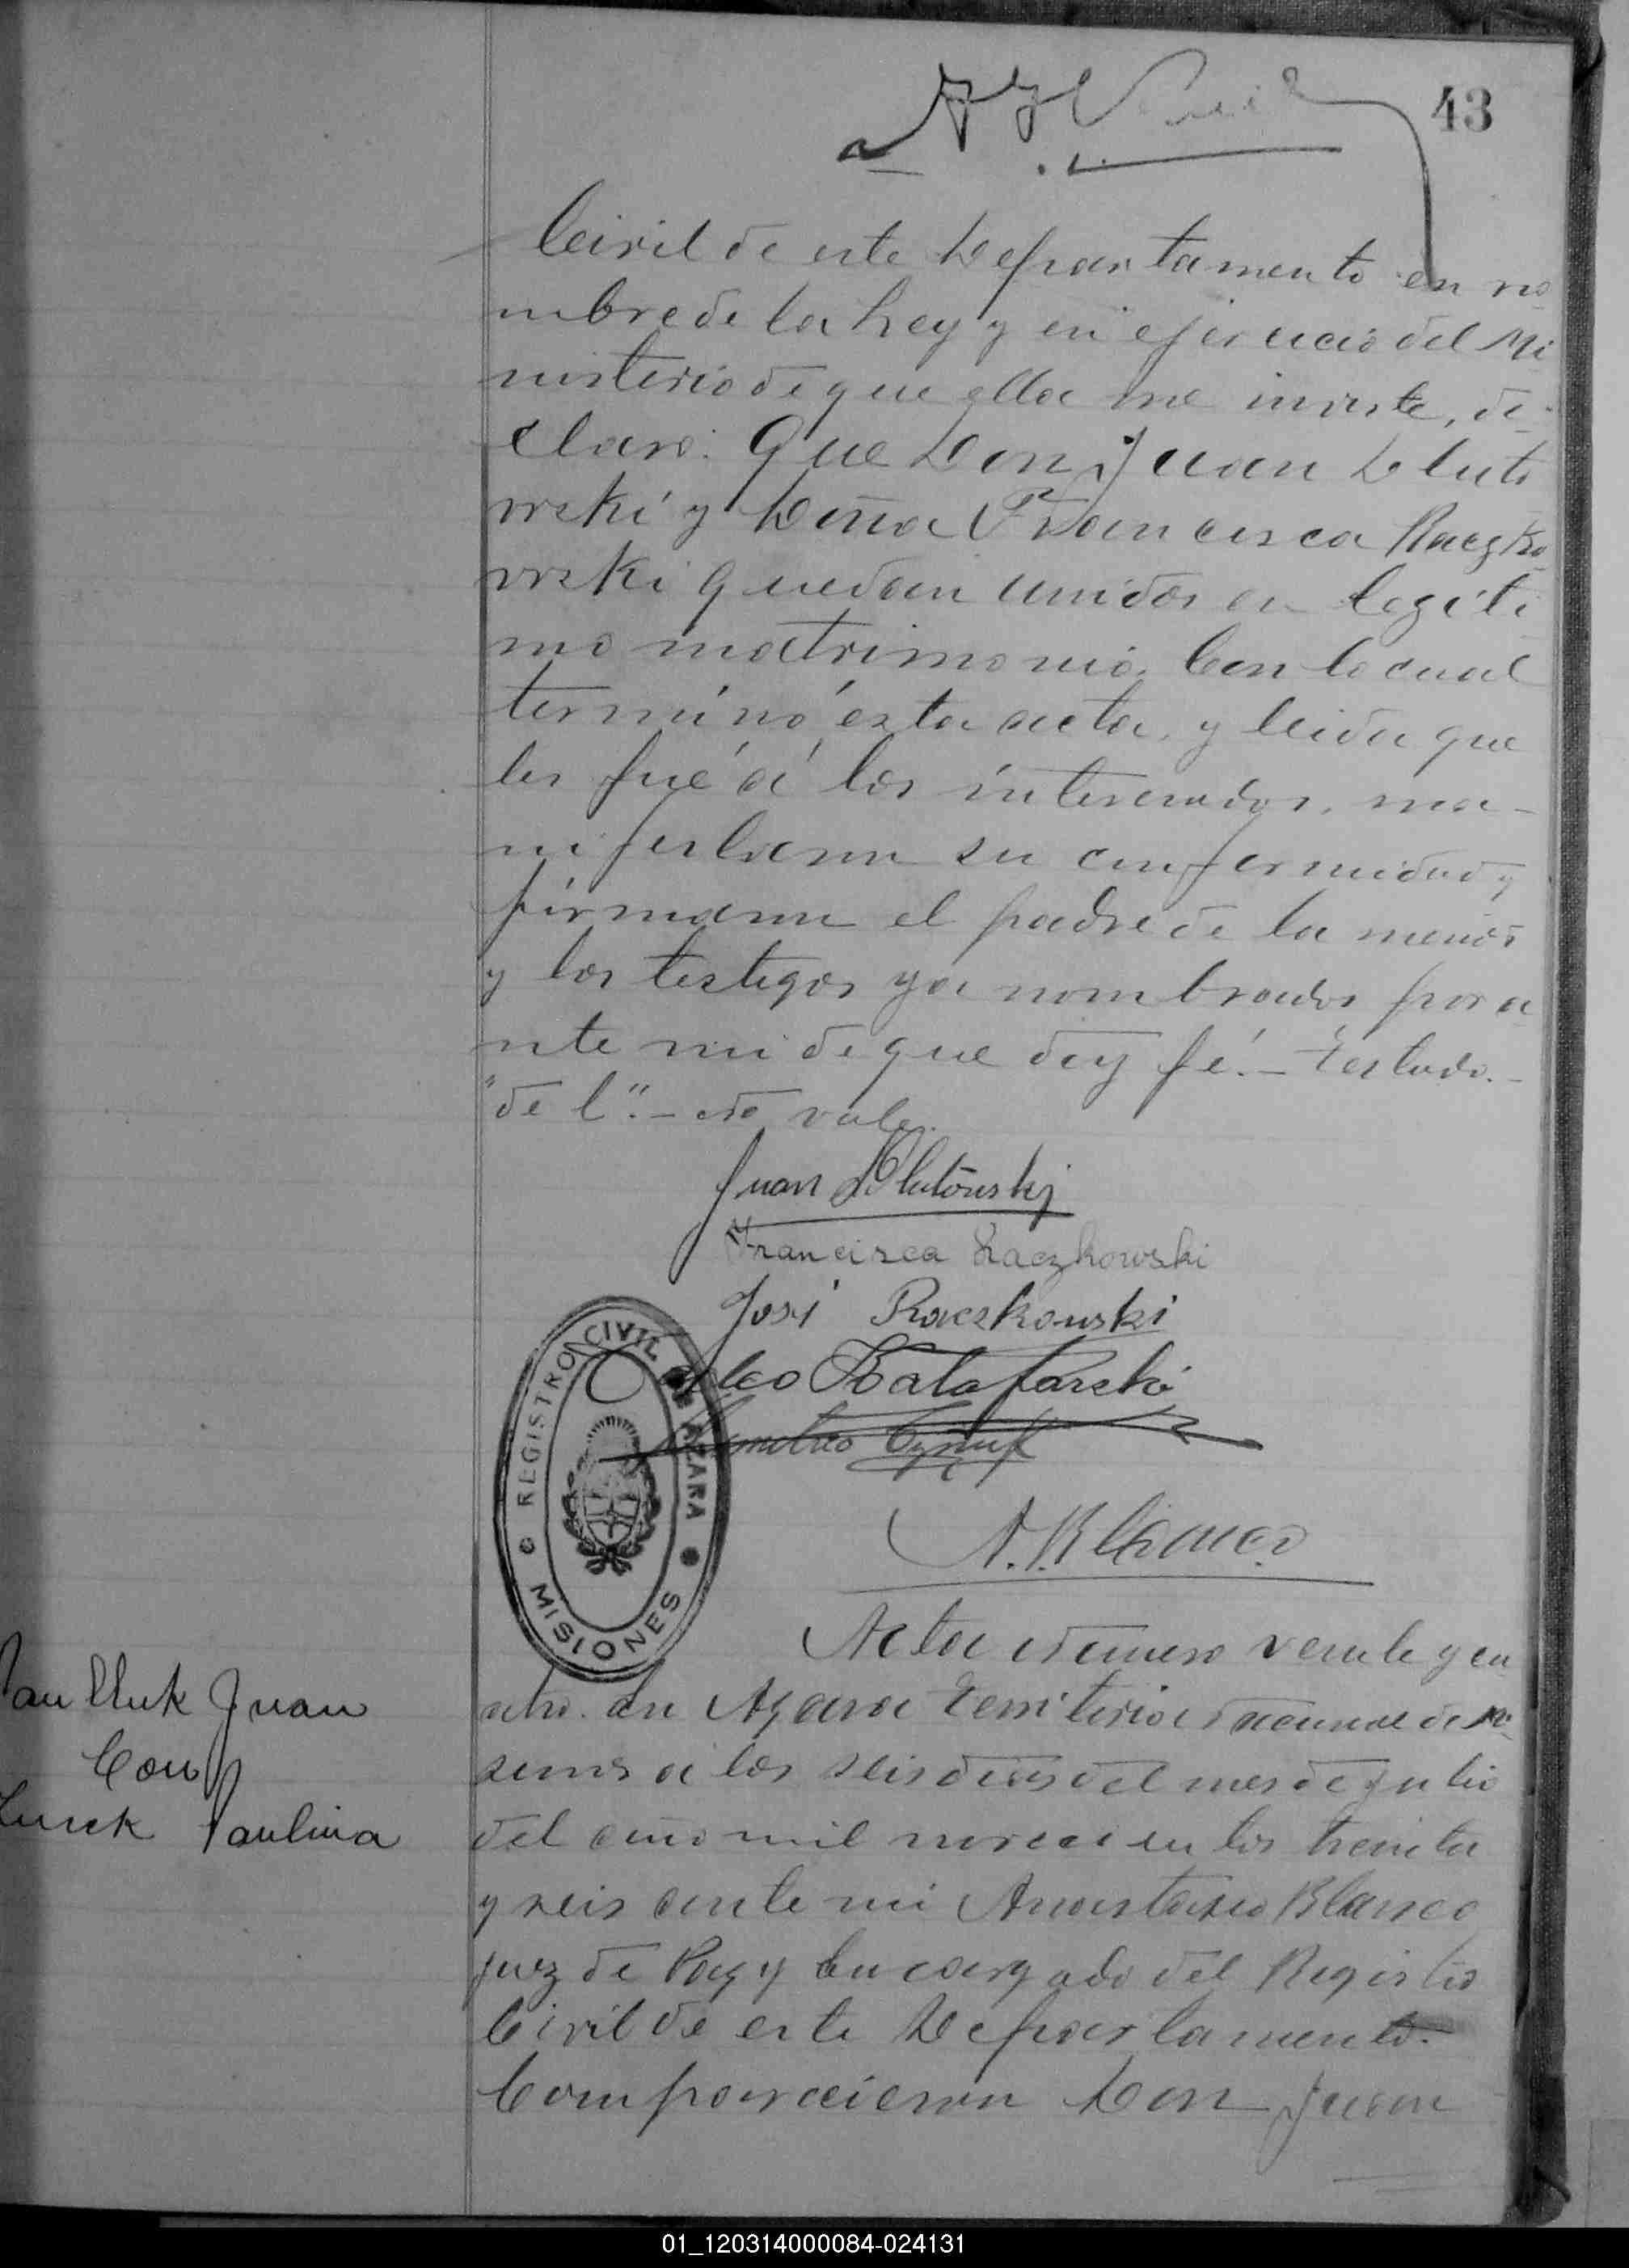 43
Civil de este Departamento en no
mbre de la Ley y en ejercicio del Mi
nisterio de que ella me inviste, de-
claro: Que Don Juan Dluto
wski y Doña Francisca Raczko
wski quedan unidos en legíti
mo matrimonio. Con lo cual
terminó esta acta, y leida que
les fué á los interesados, ma-
nifestaron su conformidad y
firmaron el padre de la menor
y los testigos ya nombrados por a
nte mi de que doy fé.- Testado.-
"de l".- no vale.
Juan Dlutowski
Francisca Raczkowski
José Raczkowski
REGISTRO CIVIL DE AZARA
MISIONES
A. Blanco
Acta número veinte y cu
atro. En Azara Territorio Nacional de Mi
siones a los seis dias del mes de Julio
del año mil novecientos treinta
y seis ante mi Anastasio Blanco
Juez de Paz y Encargado del Registro
Civil de este Departamento.-
Comparecieron Don Juan
Juan
Con
Paulina
01_120314000084-024131